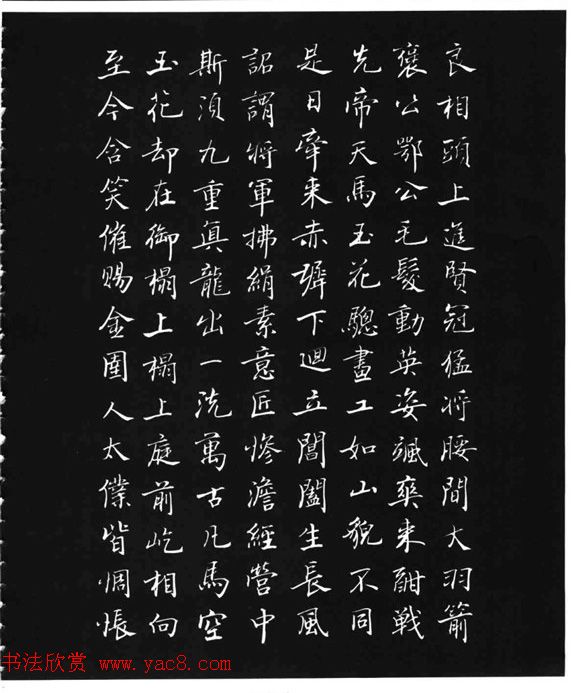 良相頭上進賢冠猛将腰間大羽箭
褒公鄂公毛髮動英姿颯爽来酣戦
先帝天馬玉花驄畫工如山貌不同
是日牽来赤墀下迴立閶闔生長風
詔謂将軍拂絹素意匠慘澹經營中
斯須九重真龍出一洗萬古凡馬空
玉花却在御榻上榻上庭前屹相向
至今含笑催賜金圉人太僕皆惆悵
书法欣赏 www.yac8.com